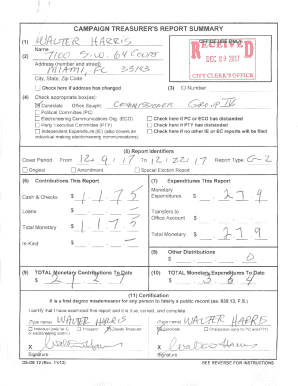 CAMPAIGN TREASURER'S REPORT SUMMARY
(1) WALTER HARRIS
Name
OFFICE USE ONLY
RECEIVED
DEC 29 2017
CITY CLERK'S OFFICE
(2) 7100 S.W. 64 COURT
Address (number and street)
MIAMI, FL 33143
City, State, Zip Code
Check here if address has changed
(3) ID Number:
(4) Check appropriate box(es):
Candidate Office Sought: COMMISSIONER GROUP IV
Political Committee (PC)
Electioneering Communications Org. (ECO)
Check here if PC or ECO has disbanded
Party Executive Committee (PTY)
Check here if PTY has disbanded
Independent Expenditure (IE) (also covers an individual making electioneering communications)
Check here if no other IE or EC reports will be filed
(5) Report Identifiers
Cover Period: From 12/9/17 To 12/22/17 Report Type: G-2
Original Amendment Special Election Report
(6) Contributions This Report
(7) Expenditures This Report
Cash & Checks $ 1,175
Monetary Expenditures $ 279
Loans $
Transfers to Office Account $
Total Monetary $ 1,175
Total Monetary $ 279
In-Kind $
(8) Other Distributions
$ 0
(9) TOTAL Monetary Contributions To Date
$ 2,127
(10) TOTAL Monetary Expenditures To Date
$ 364
(11) Certification
It is a first degree misdemeanor for any person to falsify a public record (ss. 839.13, F.S.)
I certify that I have examined this report and it is true, correct, and complete:
(Type name) WALTER HARRIS
(Type name) WALTER HARRIS
Individual (only for IE or electioneering comm.) Treasurer Deputy Treasurer
Candidate Chairperson (only for PC and PTY)
X
X
Signature
Signature
DS-DE 12 (Rev. 11/13)
SEE REVERSE FOR INSTRUCTIONS